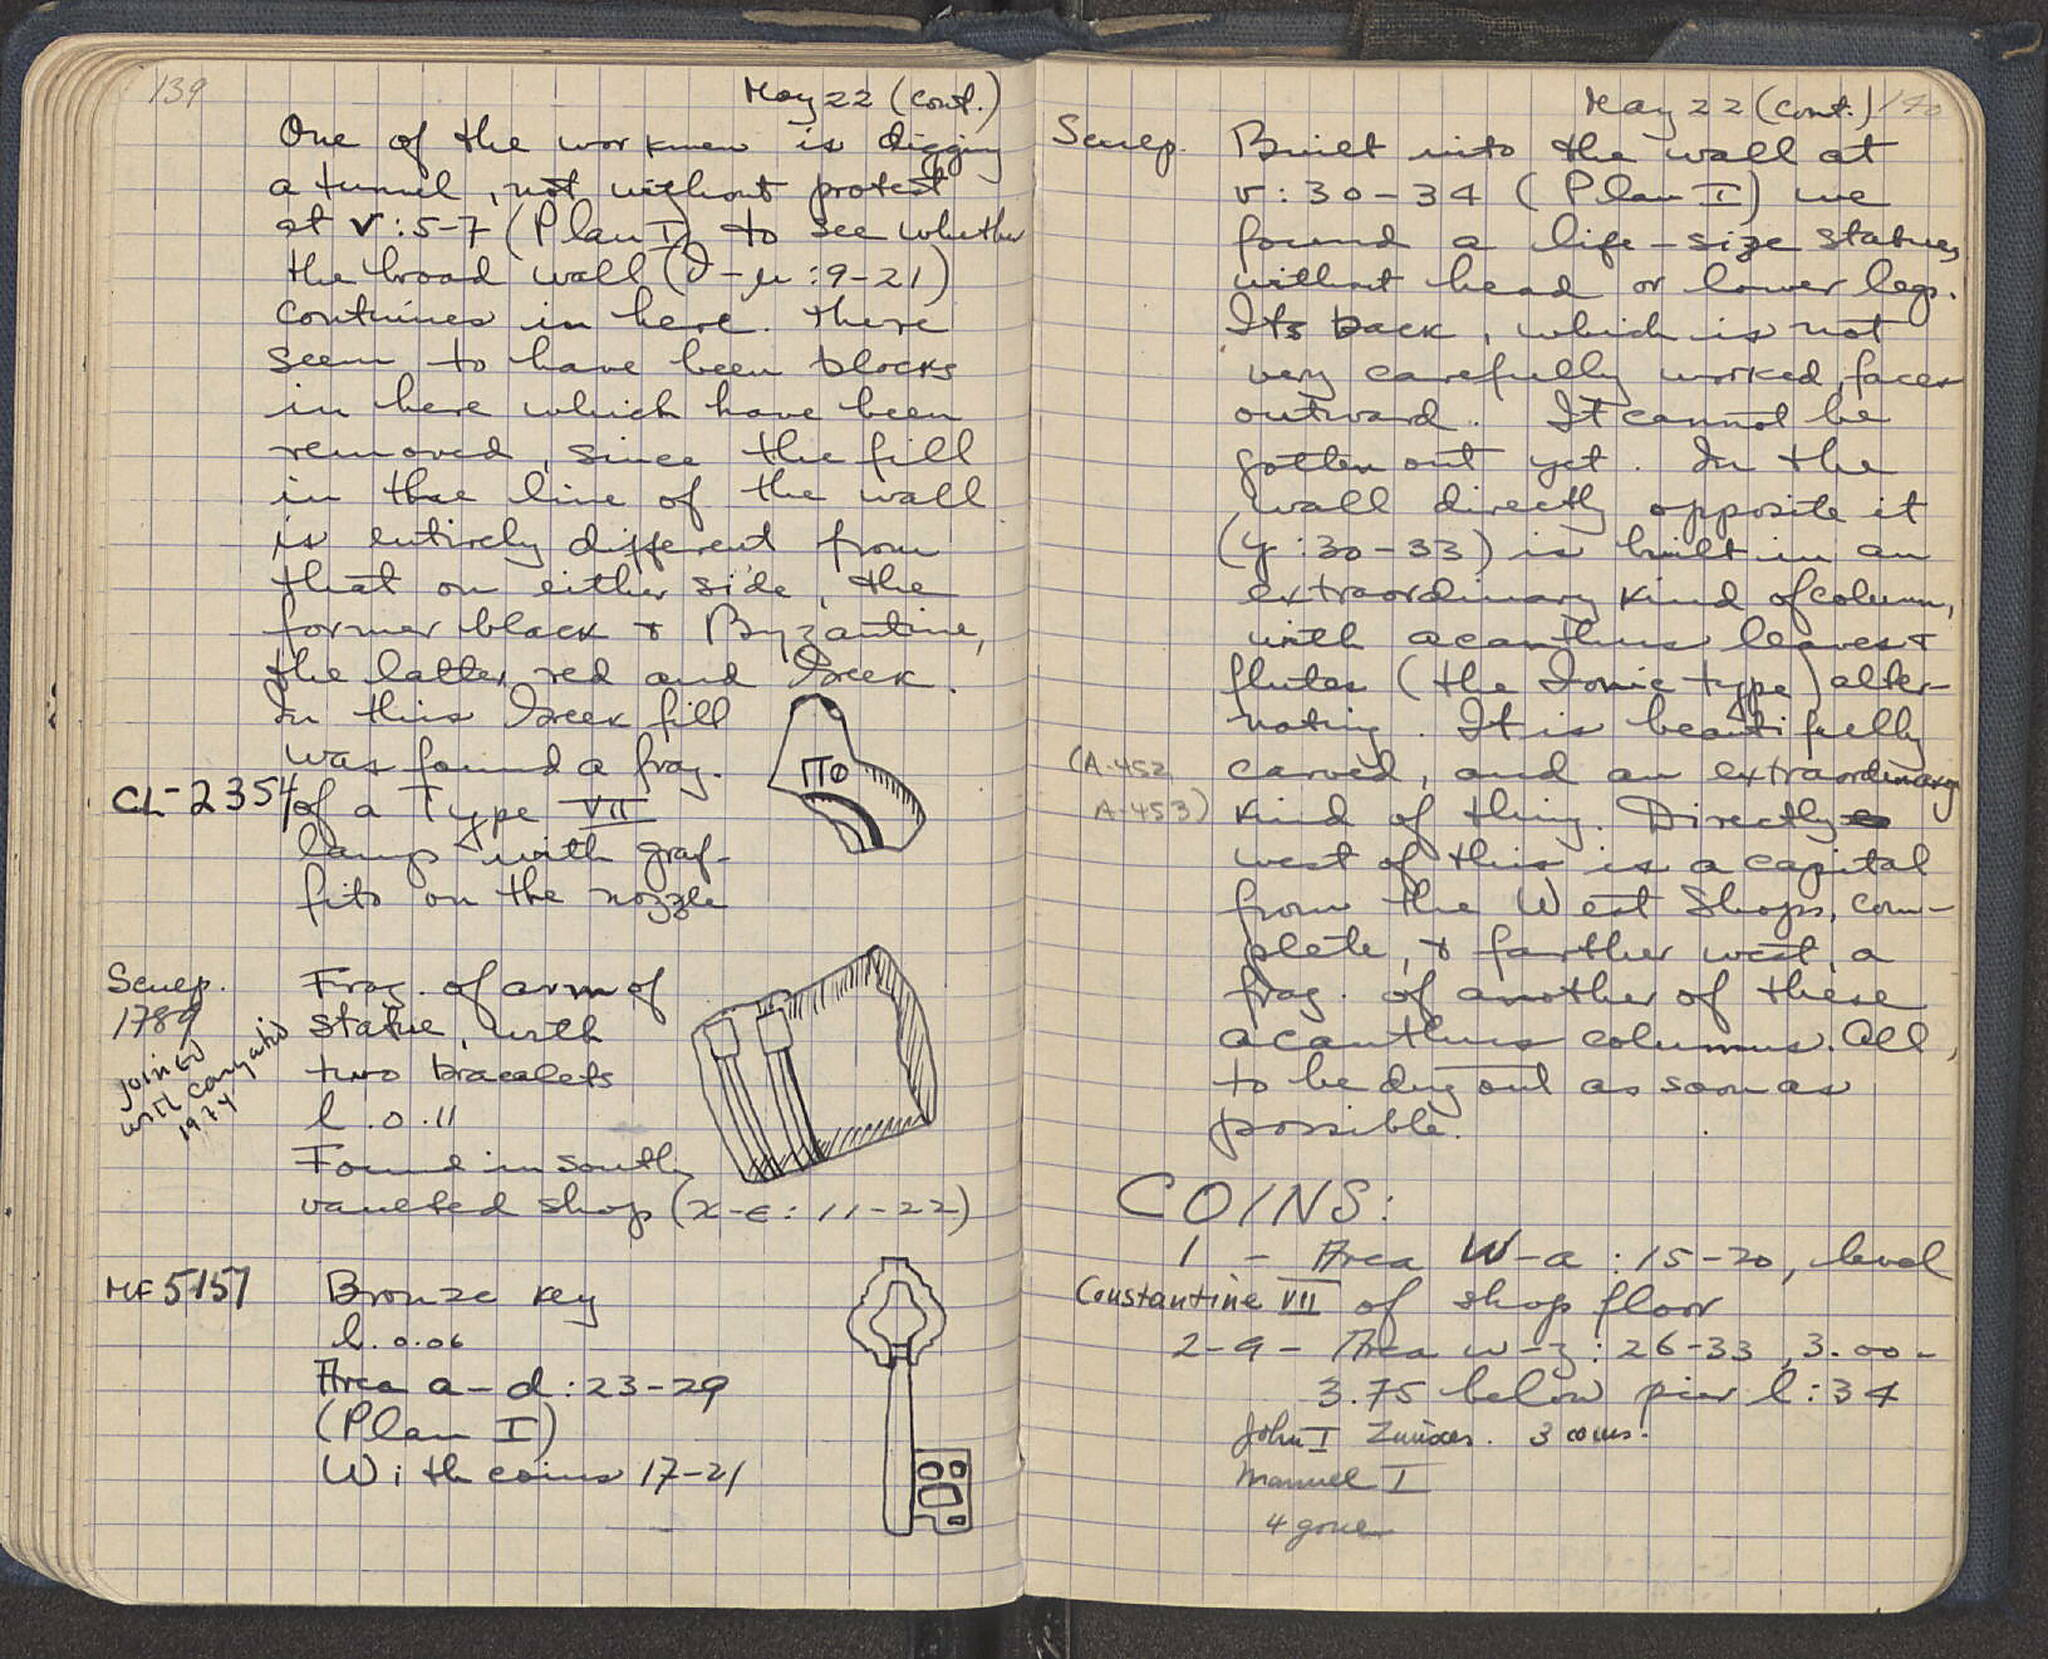 139
May 22 (cont.)
One of the workmen is digging
a tunnel, not without protest
at v:5-7 (Plan I) to see whether
the broad wall (θ-μ:9-21)
continues in here. There
seem to have been blocks
in here which have been
removed, since the fill
in the line of the wall
is entirely different from
that on either side, the
former black & Byzantine,
the latter red and Greek.
In this Greek fill
was found a frag.
CL-2354 of a Type VII
lamp with graf-
fito on the nozzle
ΠΘ
Sculp. Frag. of arm of
1789 statue, with
joined two bracelets
with caryatid l. 0.11
1974
Found in south
vaulted shop (x-ε:11-22)
MF 5157 Bronze key
l. 0.06
Area a-d:23-29
(Plan I)
With coins 17-21
May 22 (cont.) 140
Sculp. Built into the wall at
v:30-34 (Plan I) we
found a life-size statue,
without head or lower legs.
Its back, which is not
very carefully worked, faces
outward. It cannot be
gotten out yet. In the
wall directly opposite it
(y:30-33) is built in an
extraordinary kind of column,
with acanthus leaves &
flutes (the Ionic type) alter-
nating. It is beautifully
(A-452 carved, and an extraordinary
A-453) kind of thing. Directly
west of this is a capital
from the West Shops, com-
plete, & farther west, a
frag. of another of these
acanthus columns. All,
to be dug out as soon as
possible.
COINS:
1 - Area W-a:15-20, level
Constantine VII of shop floor
2-9 - Area w-z:26-33, 3.00-
3.75 below pier l:34
John I Zimisces. 3 coins.
Manuel I
4 gone